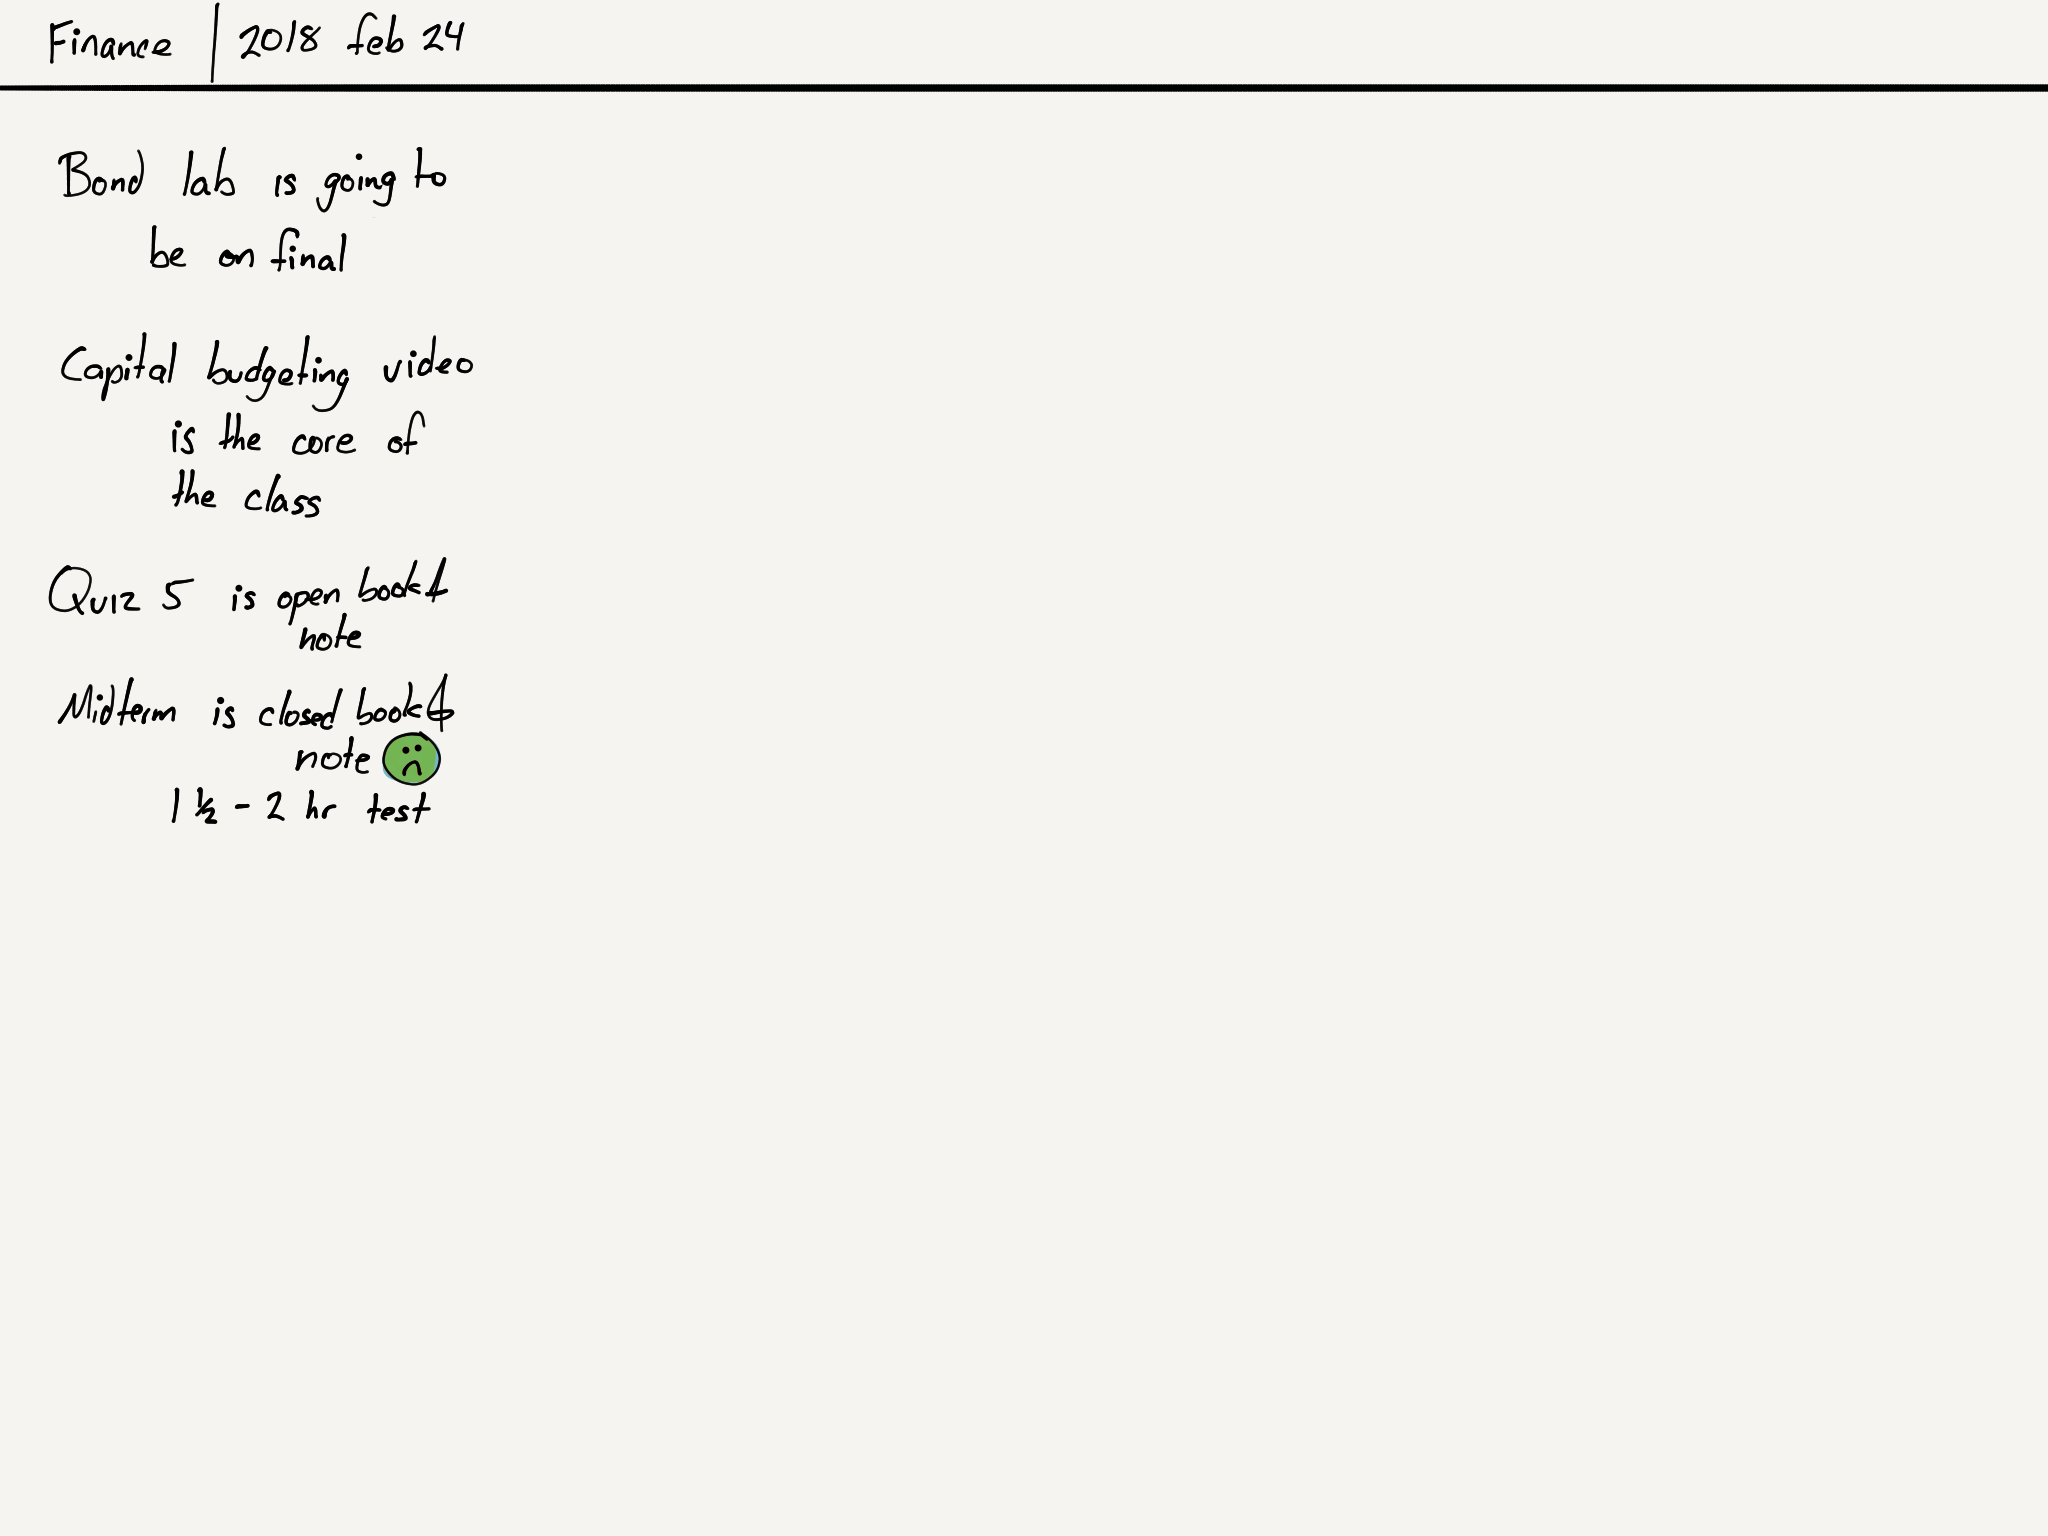 Finance | 2018 feb 24
Bond lab is going to
be on final
Capital budgeting video
is the core of
the class
Quiz 5 is open book &
note
Midterm is closed book &
note
1 ½ - 2 hr test